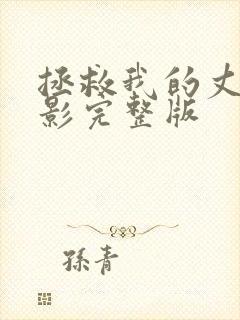 拯救我的丈
影完整版
孫青